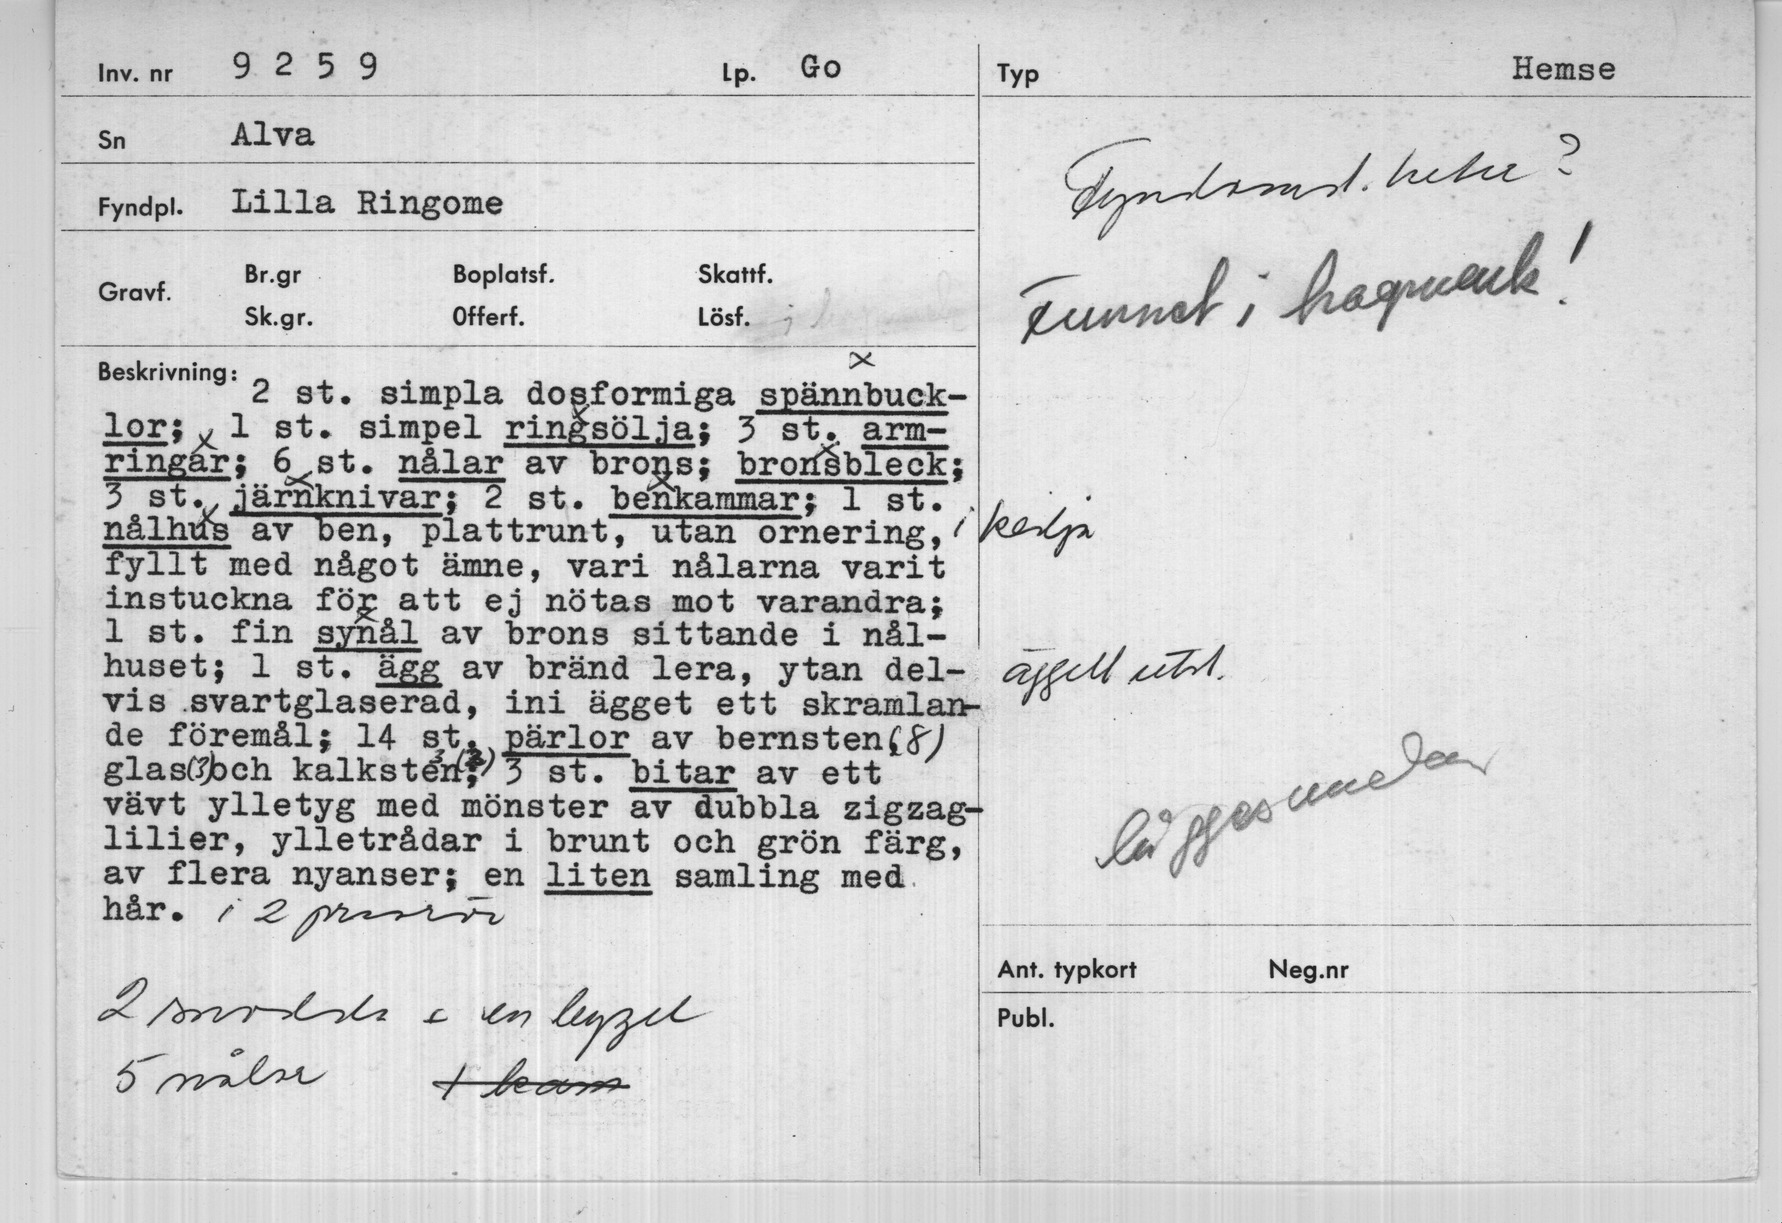 Inv. nr 9 2 5 9 Lp. Go
Typ Hemse
Sn Alva
Fyndpl. Lilla Ringome
Gravf. Br.gr Boplatsf. Skattf.
Sk.gr. Offerf. Lösf.
? 
Funnet i hagmark!
Beskrivning:
2 st. simpla dosformiga spännbuck-
lor; 1 st. simpel ringsölja; 3 st. arm-
ringar; 6 st. nålar av brons; bronsbleck;
3 st. järnknivar; 2 st. benkammar; 1 st.
nålhus av ben, plattrunt, utan ornering, i kedja
fyllt med något ämne, vari nålarna varit
instuckna för att ej nötas mot varandra;
1 st. fin synål av brons sittande i nål-
huset; 1 st. ägg av bränd lera, ytan del- ägget utst.
vis svartglaserad, ini ägget ett skramlan-
de föremål; 14 st. pärlor av bernsten, (8)
glas (3) och kalksten; 3 st. bitar av ett
vävt ylletyg med mönster av dubbla zigzag-
lilier, ylletrådar i brunt och grön färg,
av flera nyanser; en liten samling med
hår. i 2 provrör
2 c en
5 nålar 1 kam
Ant. typkort Neg.nr
Publ.